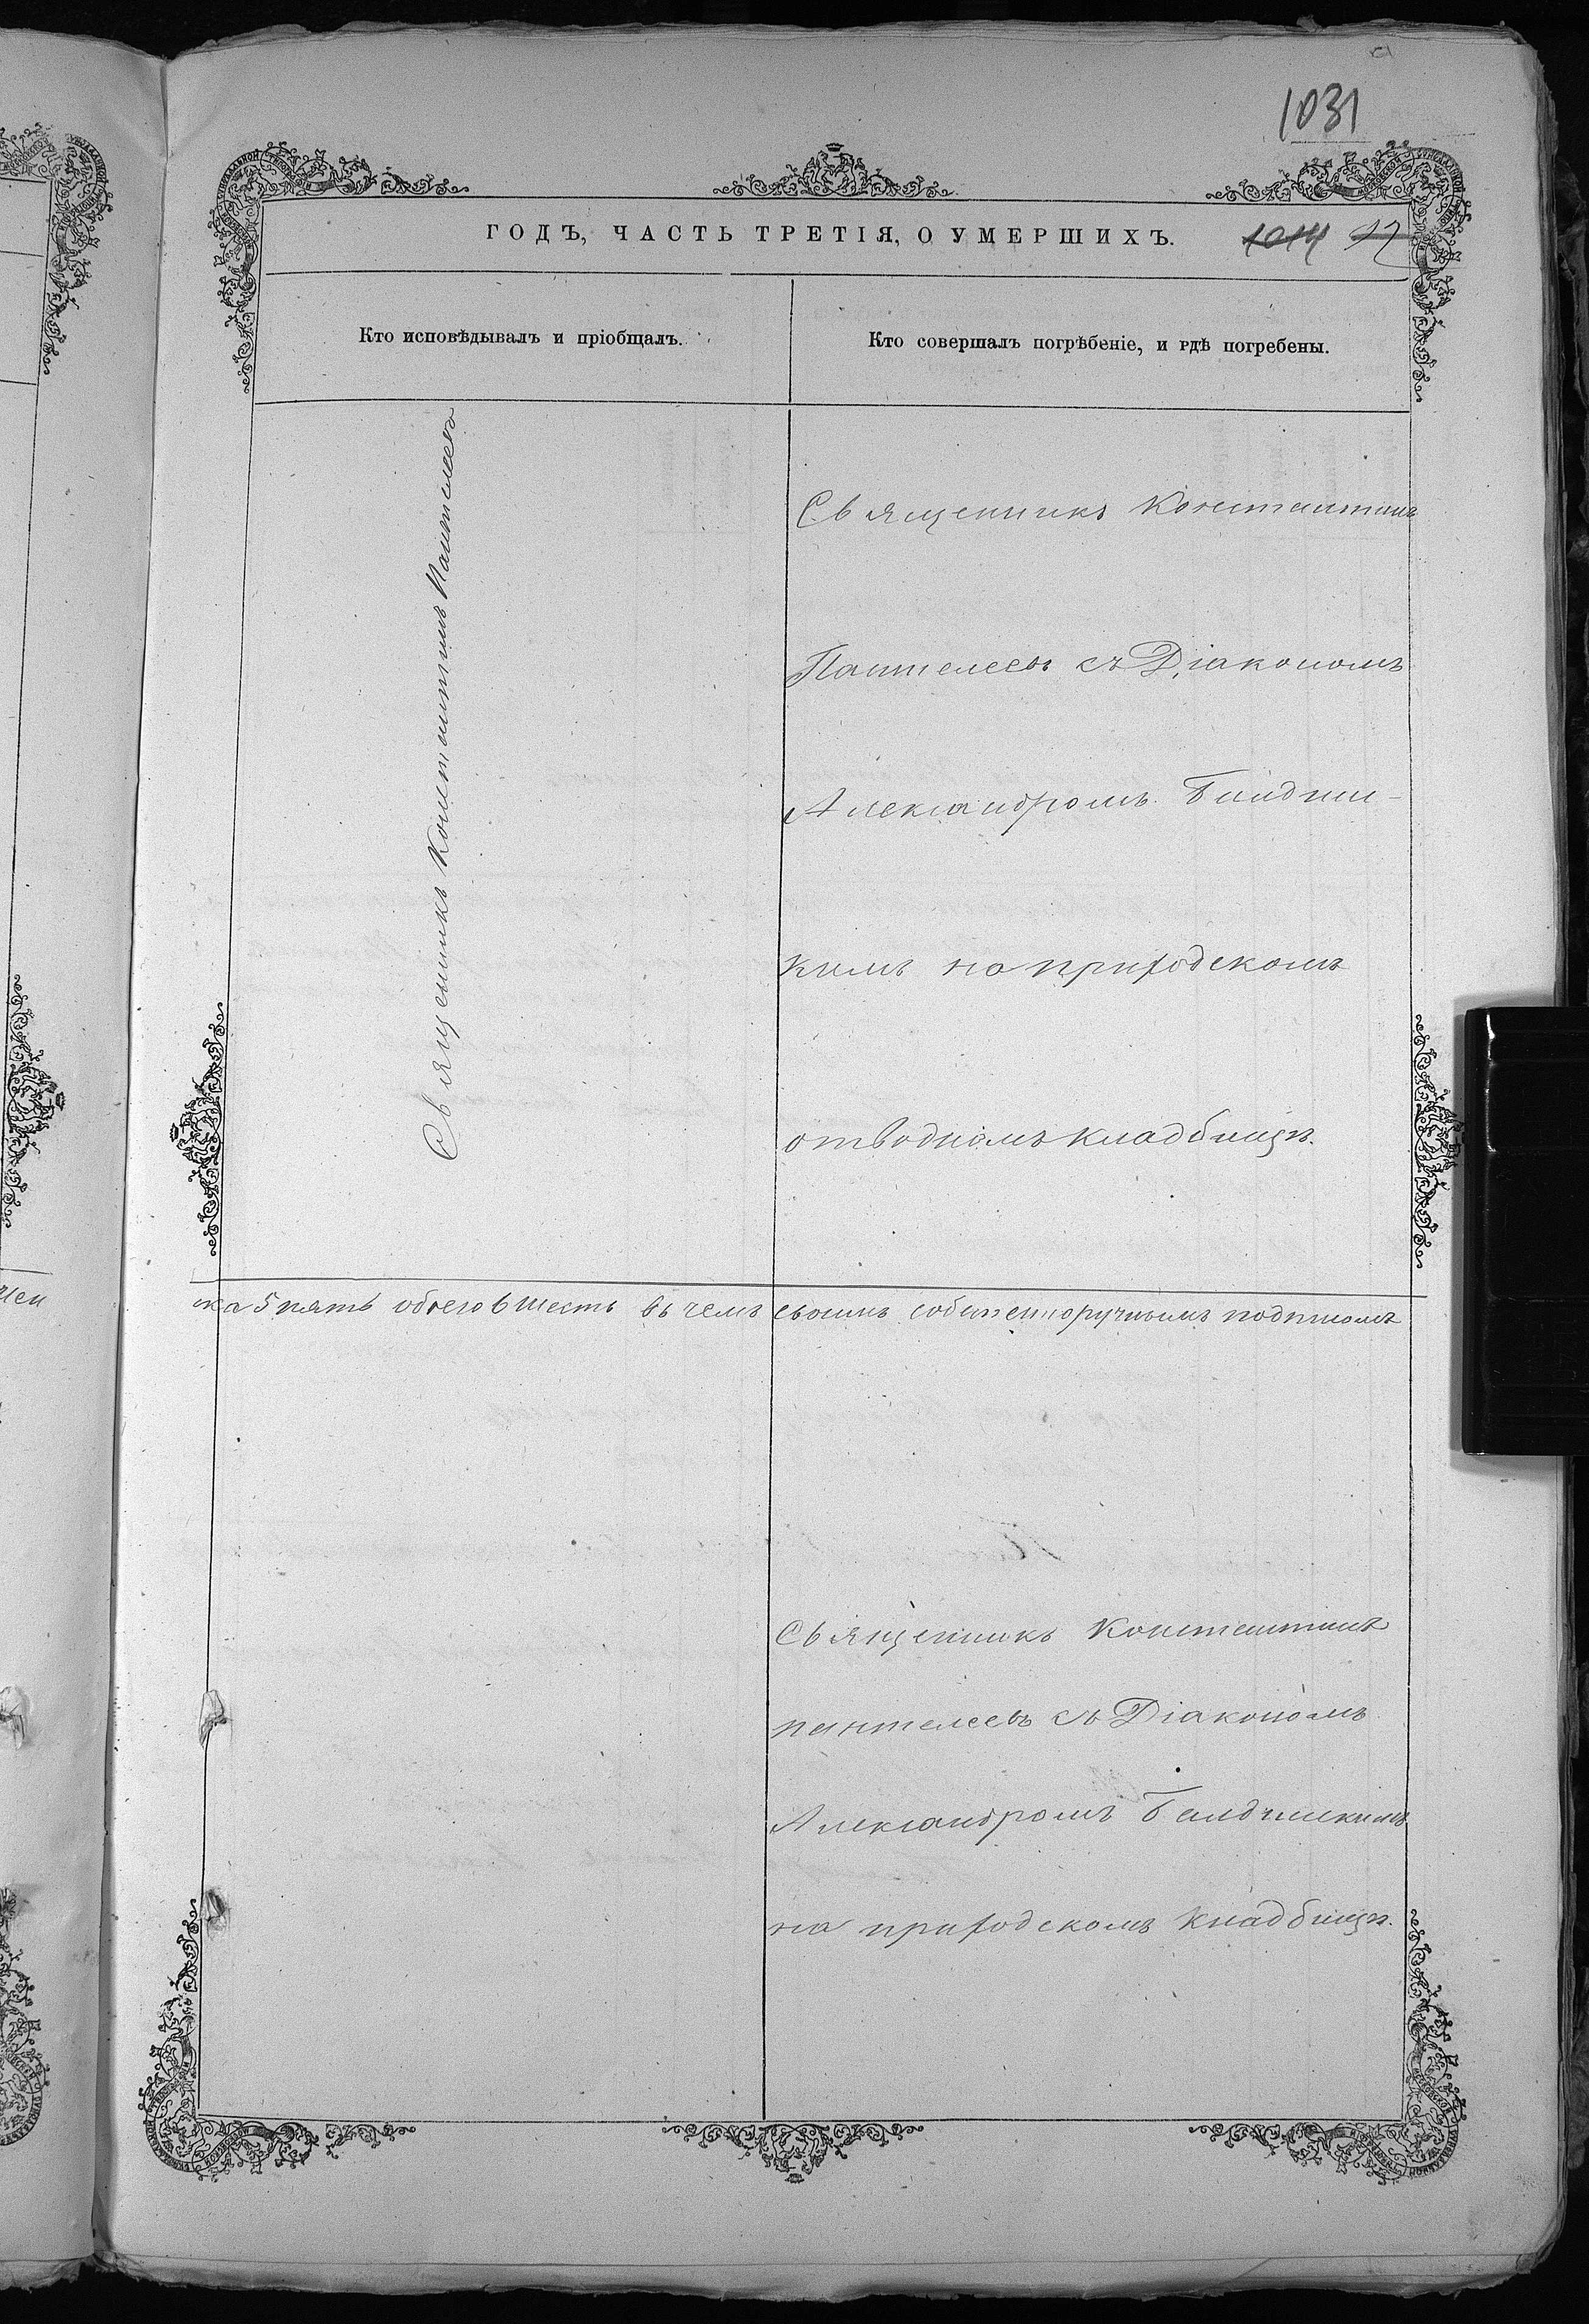 1031
ГОДЪ, ЧАСТЬ ТРЕТІЯ, О УМЕРШИХЪ.
1014
Кто исповѣдывалъ и пріобщалъ.
Кто совершалъ погрѣбеніе, и гдѣ погребены.
Священникъ Константинъ Пантелеевъ
Священникъ Константинъ
Пантелеевъ съ Діакономъ
Александромъ
кимъ на приходскомъ
отводномъ кладбищѣ.
ка 5 пять обоего 6 шесть въ чемъ своимъ собственноручнымъ подписомъ
Священникъ Константинъ
пантелеевъ съ Діакономъ
Александромъ
на приходскомъ кладбищѣ.